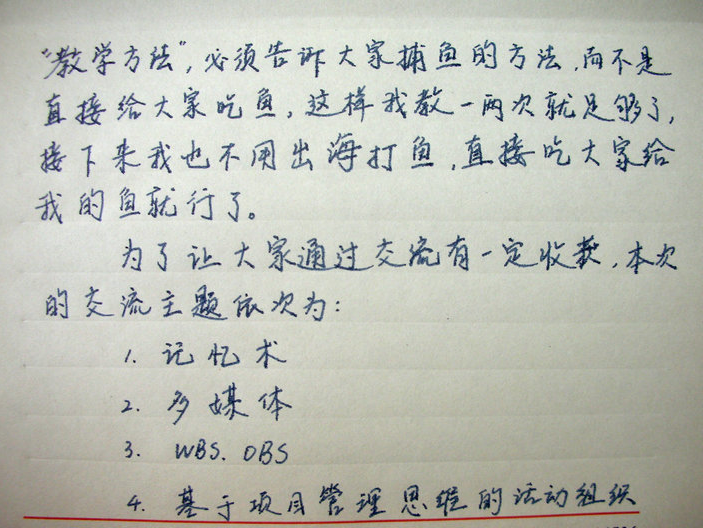 “教学方法”,必须告诉大家捕鱼的方法,而不是
直接给大家吃鱼,这样我教一两次就足够了,
接下来我也不用出海打鱼,直接吃大家给
我的鱼就行了。
为了让大家通过交流有一定收获,本次
的交流主题依次为:
1. 记忆术
2. 多媒体
3. WBS. OBS
4. 基于项目管理思维的活动组织